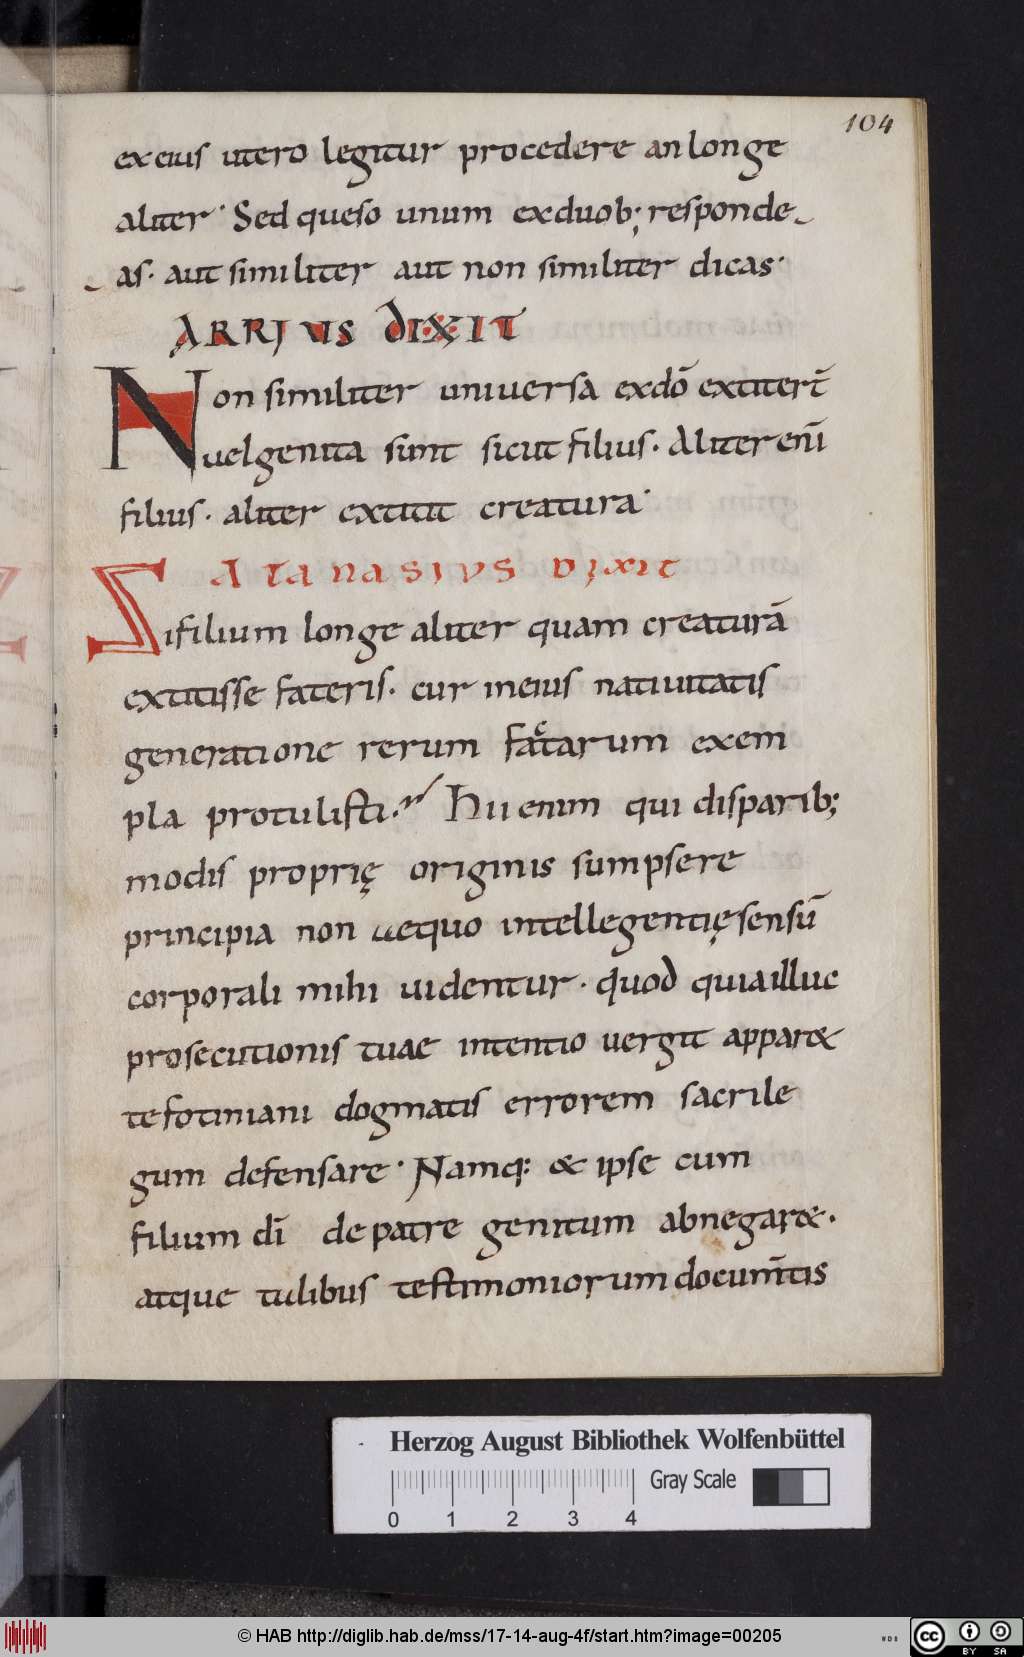 104
ex eius utero legitur procedere an longe
aliter· Sed queso unum ex duob; responde
as· aut similiter aut non similiter dicas·
ARRIUS DIXIT
Non similiter universa ex dō extiter̄
uel genita sunt sicut filius· Aliter enī
filius· aliter extitit creatura·
ATANASIVS DIXIT
Si filium longe aliter quam creaturā
extitisse fateris· cur in eius natiuitatis
generatione rerum fac̄tarum exem
pla protulisti· Hii enim qui disparib;
modis proprię originis sumpsere
principia non aequo intellegentię sensū
corporali mihi uidentur· quod quia illuc
prosecutionis tuae intentio uergit appar&
te fotiniani dogmatis errorem sacrile
gum defensare· Namq: & ipse cum
filium dī de patre genitum abnegar&·
atque talibus testimoniorum docum̄tis
Herzog August Bibliothek Wolfenbüttel
0 1 2 3 4 Gray Scale
© HAB http://diglib.hab.de/mss/17-14-aug-4f/start.htm?image=00205
WDB
cc BY SA